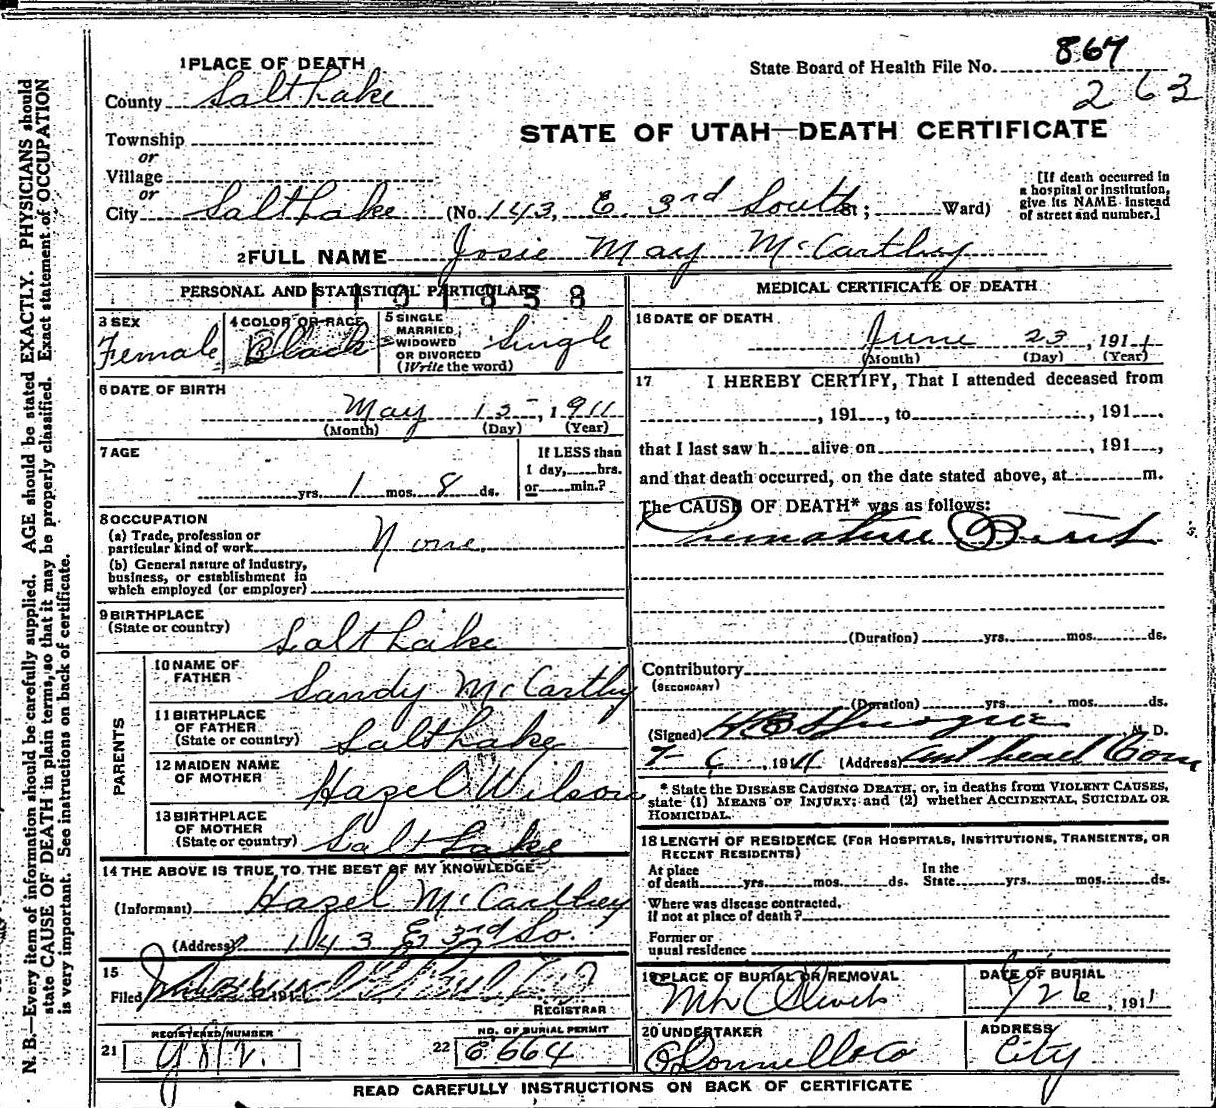 1 PLACE OF DEATH
State Board of Health File No. 867
263
County Salt Lake
STATE OF UTAH—DEATH CERTIFICATE
Township
or
Village
or
City Salt Lake (No. 143, E. 3rd South St; Ward)
[If death occurred in
a hospital or institution,
give its NAME instead
of street and number.]
2 FULL NAME Josie May McCarthy
PERSONAL AND STATISTICAL PARTICULARS
1101858
3 SEX
Female
4 COLOR OR RACE
Black
5 SINGLE
MARRIED
WIDOWED
OR DIVORCED
(Write the word)
Single
6 DATE OF BIRTH
May 15, 1911
(Month) (Day) (Year)
7 AGE
yrs. 1 mos. 8 ds.
If LESS than
1 day, hrs.
or min.?
8 OCCUPATION
(a) Trade, profession or
particular kind of work None
(b) General nature of industry,
business, or establishment in
which employed (or employer)
9 BIRTHPLACE
(State or country) Salt Lake
PARENTS
10 NAME OF
FATHER Sandy McCarthy
11 BIRTHPLACE
OF FATHER
(State or country) Salt Lake
12 MAIDEN NAME
OF MOTHER Hazel Wilson
13 BIRTHPLACE
OF MOTHER
(State or country) Salt Lake
14 THE ABOVE IS TRUE TO THE BEST OF MY KNOWLEDGE
(Informant) Hazel McCarthy
(Address) 143 E 3rd So.
15
Filed
REGISTRAR
REGISTERED NUMBER
21
NO. OF BURIAL PERMIT
22 E664
MEDICAL CERTIFICATE OF DEATH
16 DATE OF DEATH
June 23, 1911
(Month) (Day) (Year)
17 I HEREBY CERTIFY, That I attended deceased from
, 191 , to , 191 ,
that I last saw h alive on , 191 ,
and that death occurred, on the date stated above, at m.
The CAUSE OF DEATH* was as follows:
Premature Birth
(Duration) yrs. mos. ds.
Contributory
(SECONDARY)
(Duration) yrs. mos. ds.
(Signed) M. D.
7-6, 1911 (Address)
* State the DISEASE CAUSING DEATH, or, in deaths from VIOLENT CAUSES,
state (1) MEANS OF INJURY; and (2) whether ACCIDENTAL, SUICIDAL OR
HOMICIDAL.
18 LENGTH OF RESIDENCE (FOR HOSPITALS, INSTITUTIONS, TRANSIENTS, OR
RECENT RESIDENTS)
At place
of death yrs. mos. ds. In the
State yrs. mos. ds.
Where was disease contracted,
if not at place of death?
Former or
usual residence
19 PLACE OF BURIAL OR REMOVAL
Mt Olivet
DATE OF BURIAL
/26, 1911
20 UNDERTAKER
O'Donnell & Co
ADDRESS
City
READ CAREFULLY INSTRUCTIONS ON BACK OF CERTIFICATE
N. B.—Every item of information should be carefully supplied. AGE should be stated EXACTLY. PHYSICIANS should
state CAUSE OF DEATH in plain terms, so that it may be properly classified. Exact statement of OCCUPATION
is very important. See instructions on back of certificate.